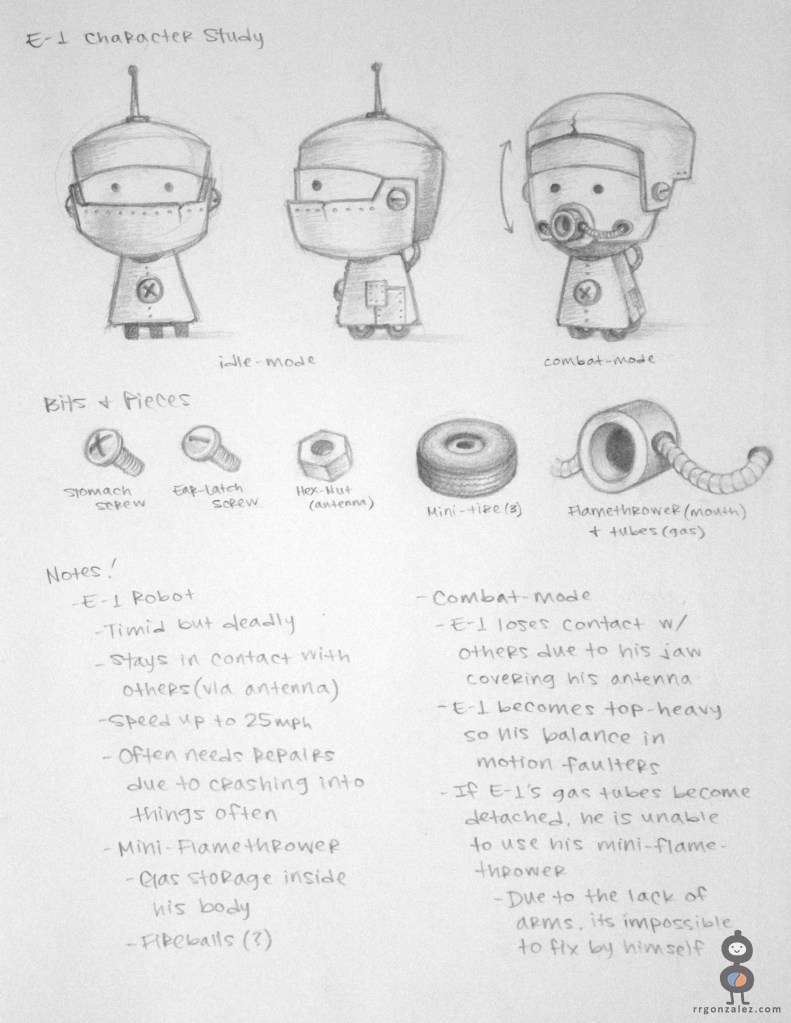 E-1 Character Study
idle-mode
combat-mode
Bits + Pieces
Stomach
screw
Ear-Latch
screw
Hex-Nut
(antenna)
Mini-tire (3)
Flamethrower (mouth)
+ tubes (gas)
Notes!
-E-1 Robot
-Timid but deadly
-Stays in contact with
others (via antenna)
-Speed up to 25mph
-Often needs repairs
due to crashing into
things often
-Mini-Flamethrower
-Gas storage inside
his body
-Fireballs (?)
-Combat-mode
-E-1 loses contact w/
others due to his jaw
covering his antenna
-E-1 becomes top-heavy
so his balance in
motion faulters
-If E-1's gas tubes become
detached, he is unable
to use his mini-flame-
thrower
-Due to the lack of
arms, its impossible
to fix by himself
rrgonzalez.com